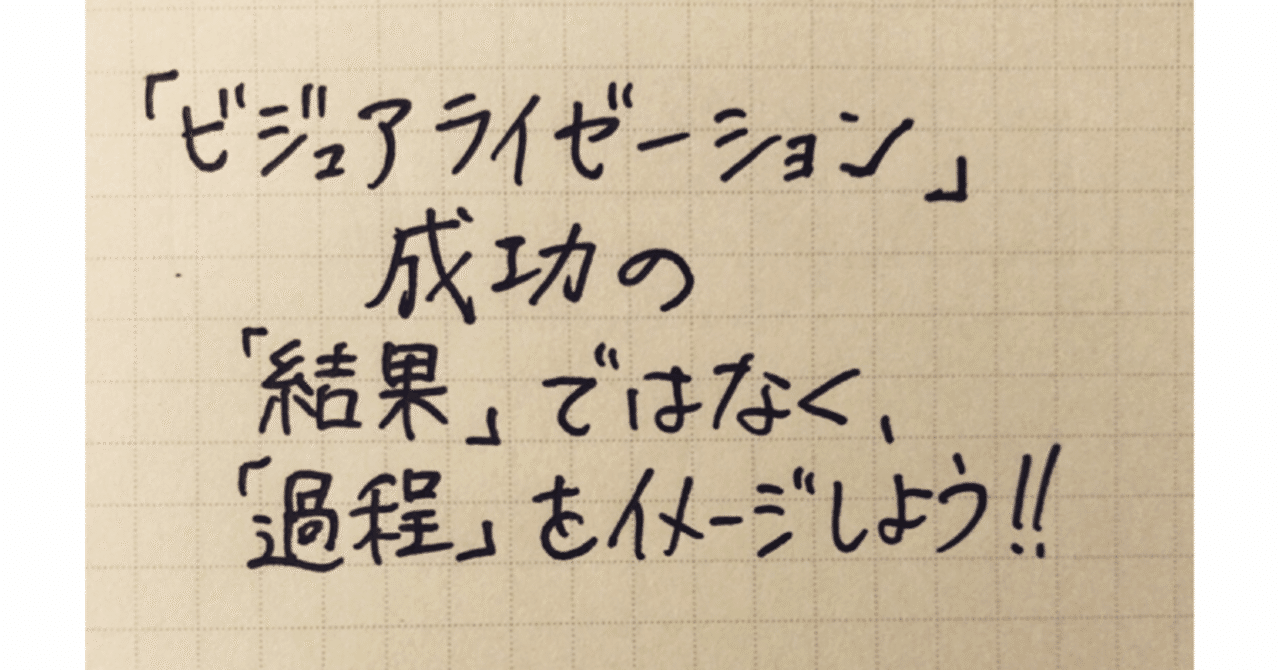 「ビジュアライゼーション」
成功の
「結果」ではなく、
「過程」をイメージしよう!!